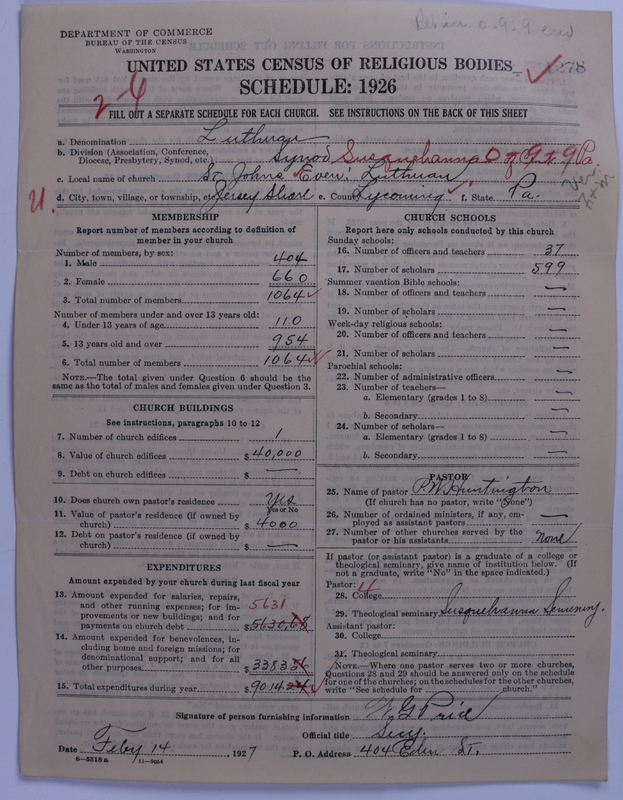 DEPARTMENT OF COMMERCE
BUREAU OF THE CENSUS
WASHINGTON
UNITED STATES CENSUS OF RELIGIOUS BODIES
SCHEDULE: 1926
2-4
FILL OUT A SEPARATE SCHEDULE FOR EACH CHURCH. SEE INSTRUCTIONS ON THE BACK OF THIS SHEET
a. Denomination Lutheran
b. Division (Association, Conference, Diocese, Presbytery, Synod, etc.) Synod Susquehanna O of G & G Pa.
c. Local name of church St. Johns Even: Lutheran
d. City, town, village, or township, etc. Jersey Shore e. County Lycoming f. State Pa.
U.
MEMBERSHIP
Report number of members according to definition of
member in your church
Number of members, by sex:
1. Male 404
2. Female 660
3. Total number of members 1064
Number of members under and over 13 years old:
4. Under 13 years of age 110
5. 13 years old and over 954
6. Total number of members 1064
NOTE.—The total given under Question 6 should be the
same as the total of males and females given under Question 3.
CHURCH BUILDINGS
See instructions, paragraphs 10 to 12
7. Number of church edifices 1
8. Value of church edifices $ 40,000
9. Debt on church edifices $ —
10. Does church own pastor's residence Yes
Yes or No
11. Value of pastor's residence (if owned by
church) $ 4000
12. Debt on pastor's residence (if owned by
church) $ —
EXPENDITURES
Amount expended by your church during last fiscal year
13. Amount expended for salaries, repairs,
and other running expenses; for im-
provements or new buildings; and for
payments on church debt $ 5630,68
5631
14. Amount expended for benevolences, in-
cluding home and foreign missions; for
denominational support; and for all
other purposes $ 3383
15. Total expenditures during year $ 9014
CHURCH SCHOOLS
Report here only schools conducted by this church
Sunday schools:
16. Number of officers and teachers 37
17. Number of scholars 599
Summer vacation Bible schools:
18. Number of officers and teachers —
19. Number of scholars —
Week-day religious schools:
20. Number of officers and teachers —
21. Number of scholars —
Parochial schools:
22. Number of administrative officers —
23. Number of teachers—
a. Elementary (grades 1 to 8) —
b. Secondary —
24. Number of scholars—
a. Elementary (grades 1 to 8) —
b. Secondary —
PASTOR
25. Name of pastor P. W. Huntington
(If church has no pastor, write "None")
26. Number of ordained ministers, if any, em-
ployed as assistant pastors —
27. Number of other churches served by the
pastor or his assistants none
If pastor (or assistant pastor) is a graduate of a college or
theological seminary, give name of institution below. (If
not a graduate, write "No" in the space indicated.)
Pastor:
28. College
29. Theological seminary Susquehanna Seminary.
Assistant pastor:
30. College
31. Theological seminary
NOTE.—Where one pastor serves two or more churches,
Questions 28 and 29 should be answered only on the schedule
for one of the churches; on the schedules for the other churches,
write "See schedule for church."
Signature of person furnishing information W G Price
Official title Secy.
Date Feby 14 1927 P. O. Address 404 Eden St.
6—3318a 11—9054